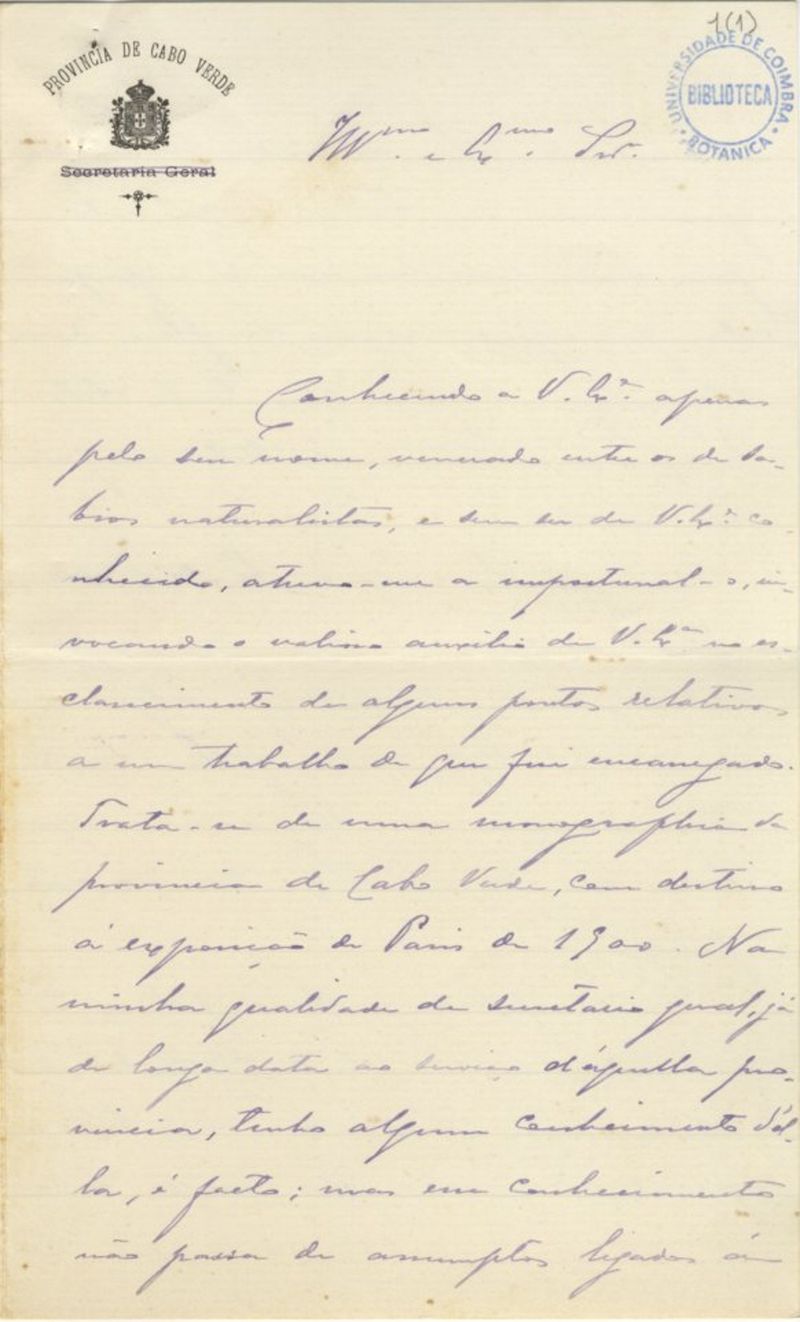 1(1)
PROVINCIA DE CABO VERDE
UNIVERSIDADE DE COIMBRA
BIBLIOTECA
BOTANICA
Secretaria Geral
Illmo. e Exmo. Snr.
Conhecendo a V. Exª. apenas
pelo seu nome, venerado entre os de sa-
bios naturalistas, e sem ser de V. Exª. co-
nhecido, atrevo-me a importunal-o, in-
vocando o valioso auxilio de V. Exª no es-
clarecimento de alguns pontos relativos
a um trabalho de que fui encarregado.
Trata-se de uma monographia da
provincia de Cabo Verde, com destino
á exposição de Paris de 1900. Na
minha qualidade de secretario geral, já
de longa data ao serviço d'áquella pro-
vincia, tenho algum conhecimento d'el-
la, é facto; mas esse conhecimento
não passa de assumptos ligados ás